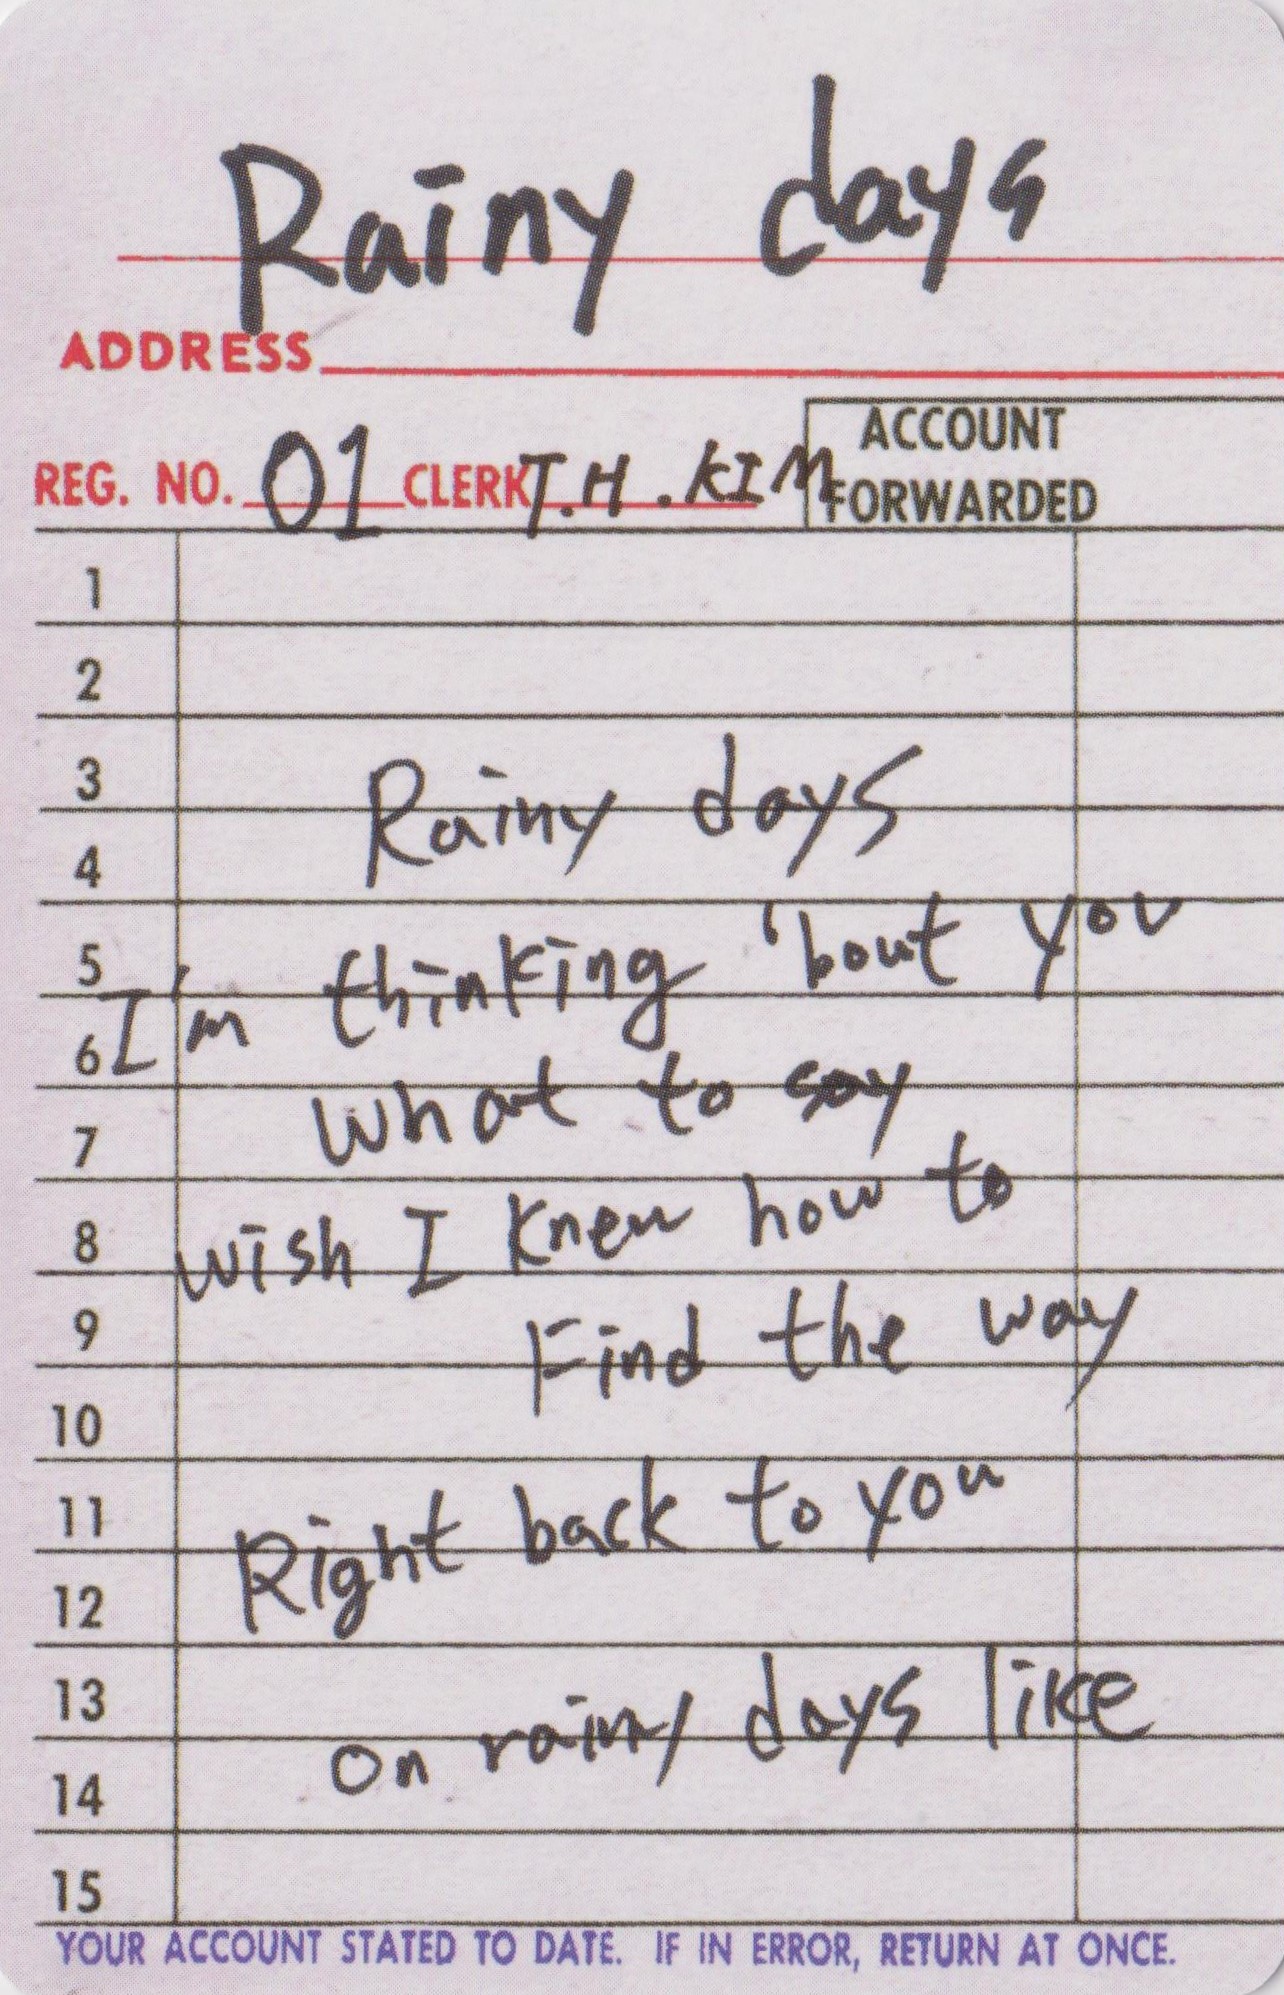 Rainy days
ADDRESS
REG. NO. 01 CLERK T.H.KIM
ACCOUNT
FORWARDED
1
2
3
Rainy days
4
5
I'm thinking 'bout you
6
what to say
7
8
wish I knew how to
9
Find the way
10
11
Right back to you
12
13
on rainy days like
14
15
YOUR ACCOUNT STATED TO DATE. IF IN ERROR, RETURN AT ONCE.